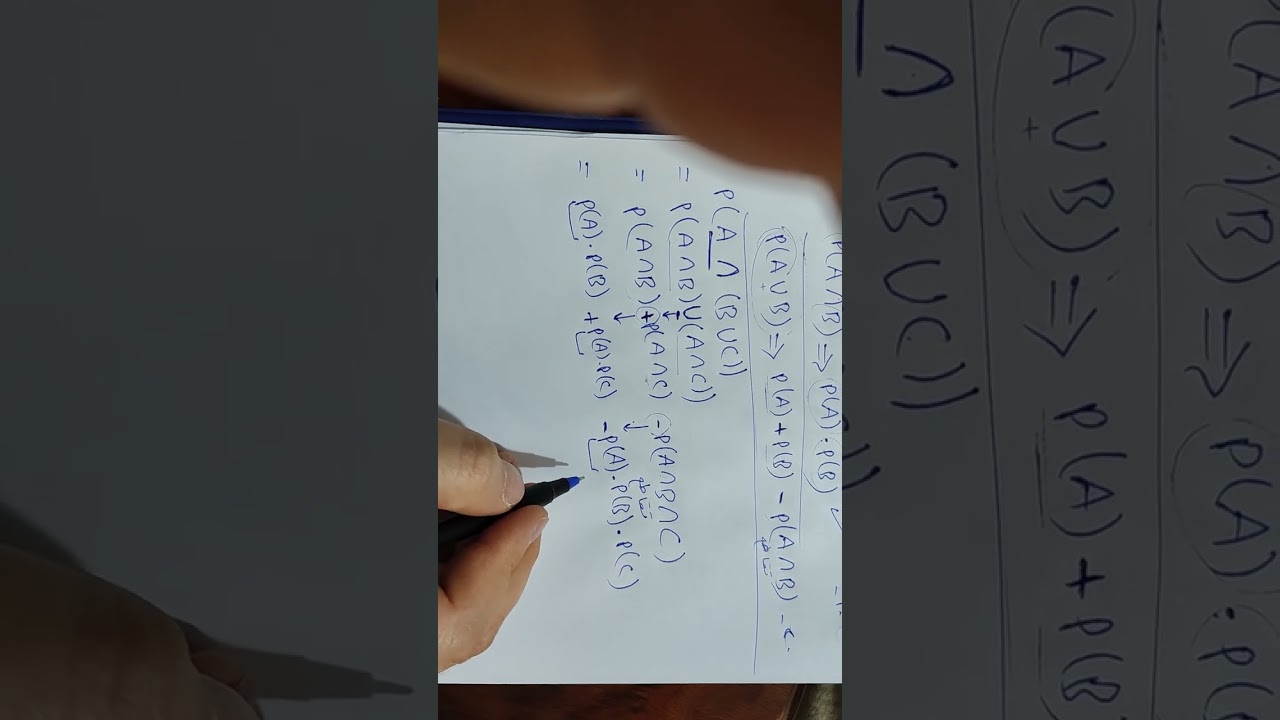 P(A∩B) ⇒ P(A)·P(B)
P(A∪B) ⇒ P(A) + P(B) - P(A∩B)
+
P(A∩(B∪C))
= P((A∩B)∪(A∩C))
= P(A∩B) + P(A∩C) - P(A∩B∩C)
= P(A)·P(B) + P(A)·P(C) - P(A)·P(B)·P(C)